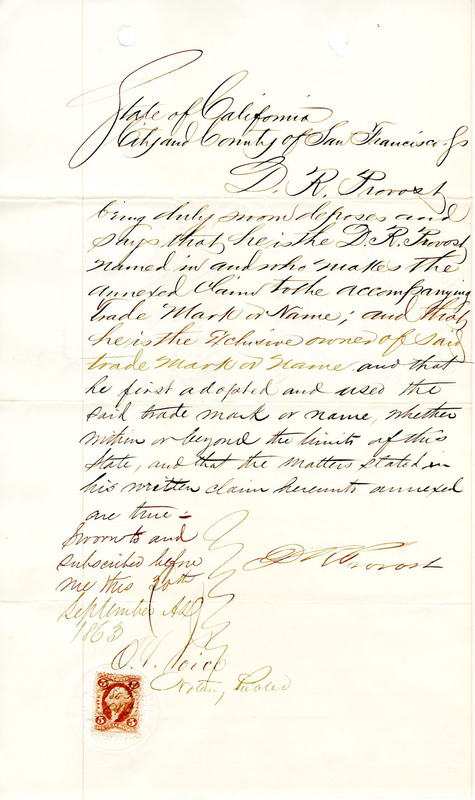 State of California
City and County of San Francisco Ss
D. R. Provost
being duly sworn deposes and
says that he is the D. R. Provost
named in and who makes the
annexed Claim to the accompanying
Trade Mark or Name; and that
he is the Exclusive owner of said
trade mark or name and that
he first adopted and used the
said trade mark or name, whether
within or beyond the limits of this
State, and that the matters stated in
his written claim hereunto annexed
are true –
Sworn to and
subscribed before
me this 30th
September AD
1863
D R Provost
Notary Public
5 5